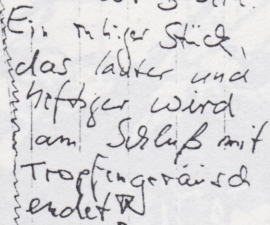 Ein ruhiger Stück,
das lauter und
heftiger wird
am Schluß mit
Tropfengeräusch
endet